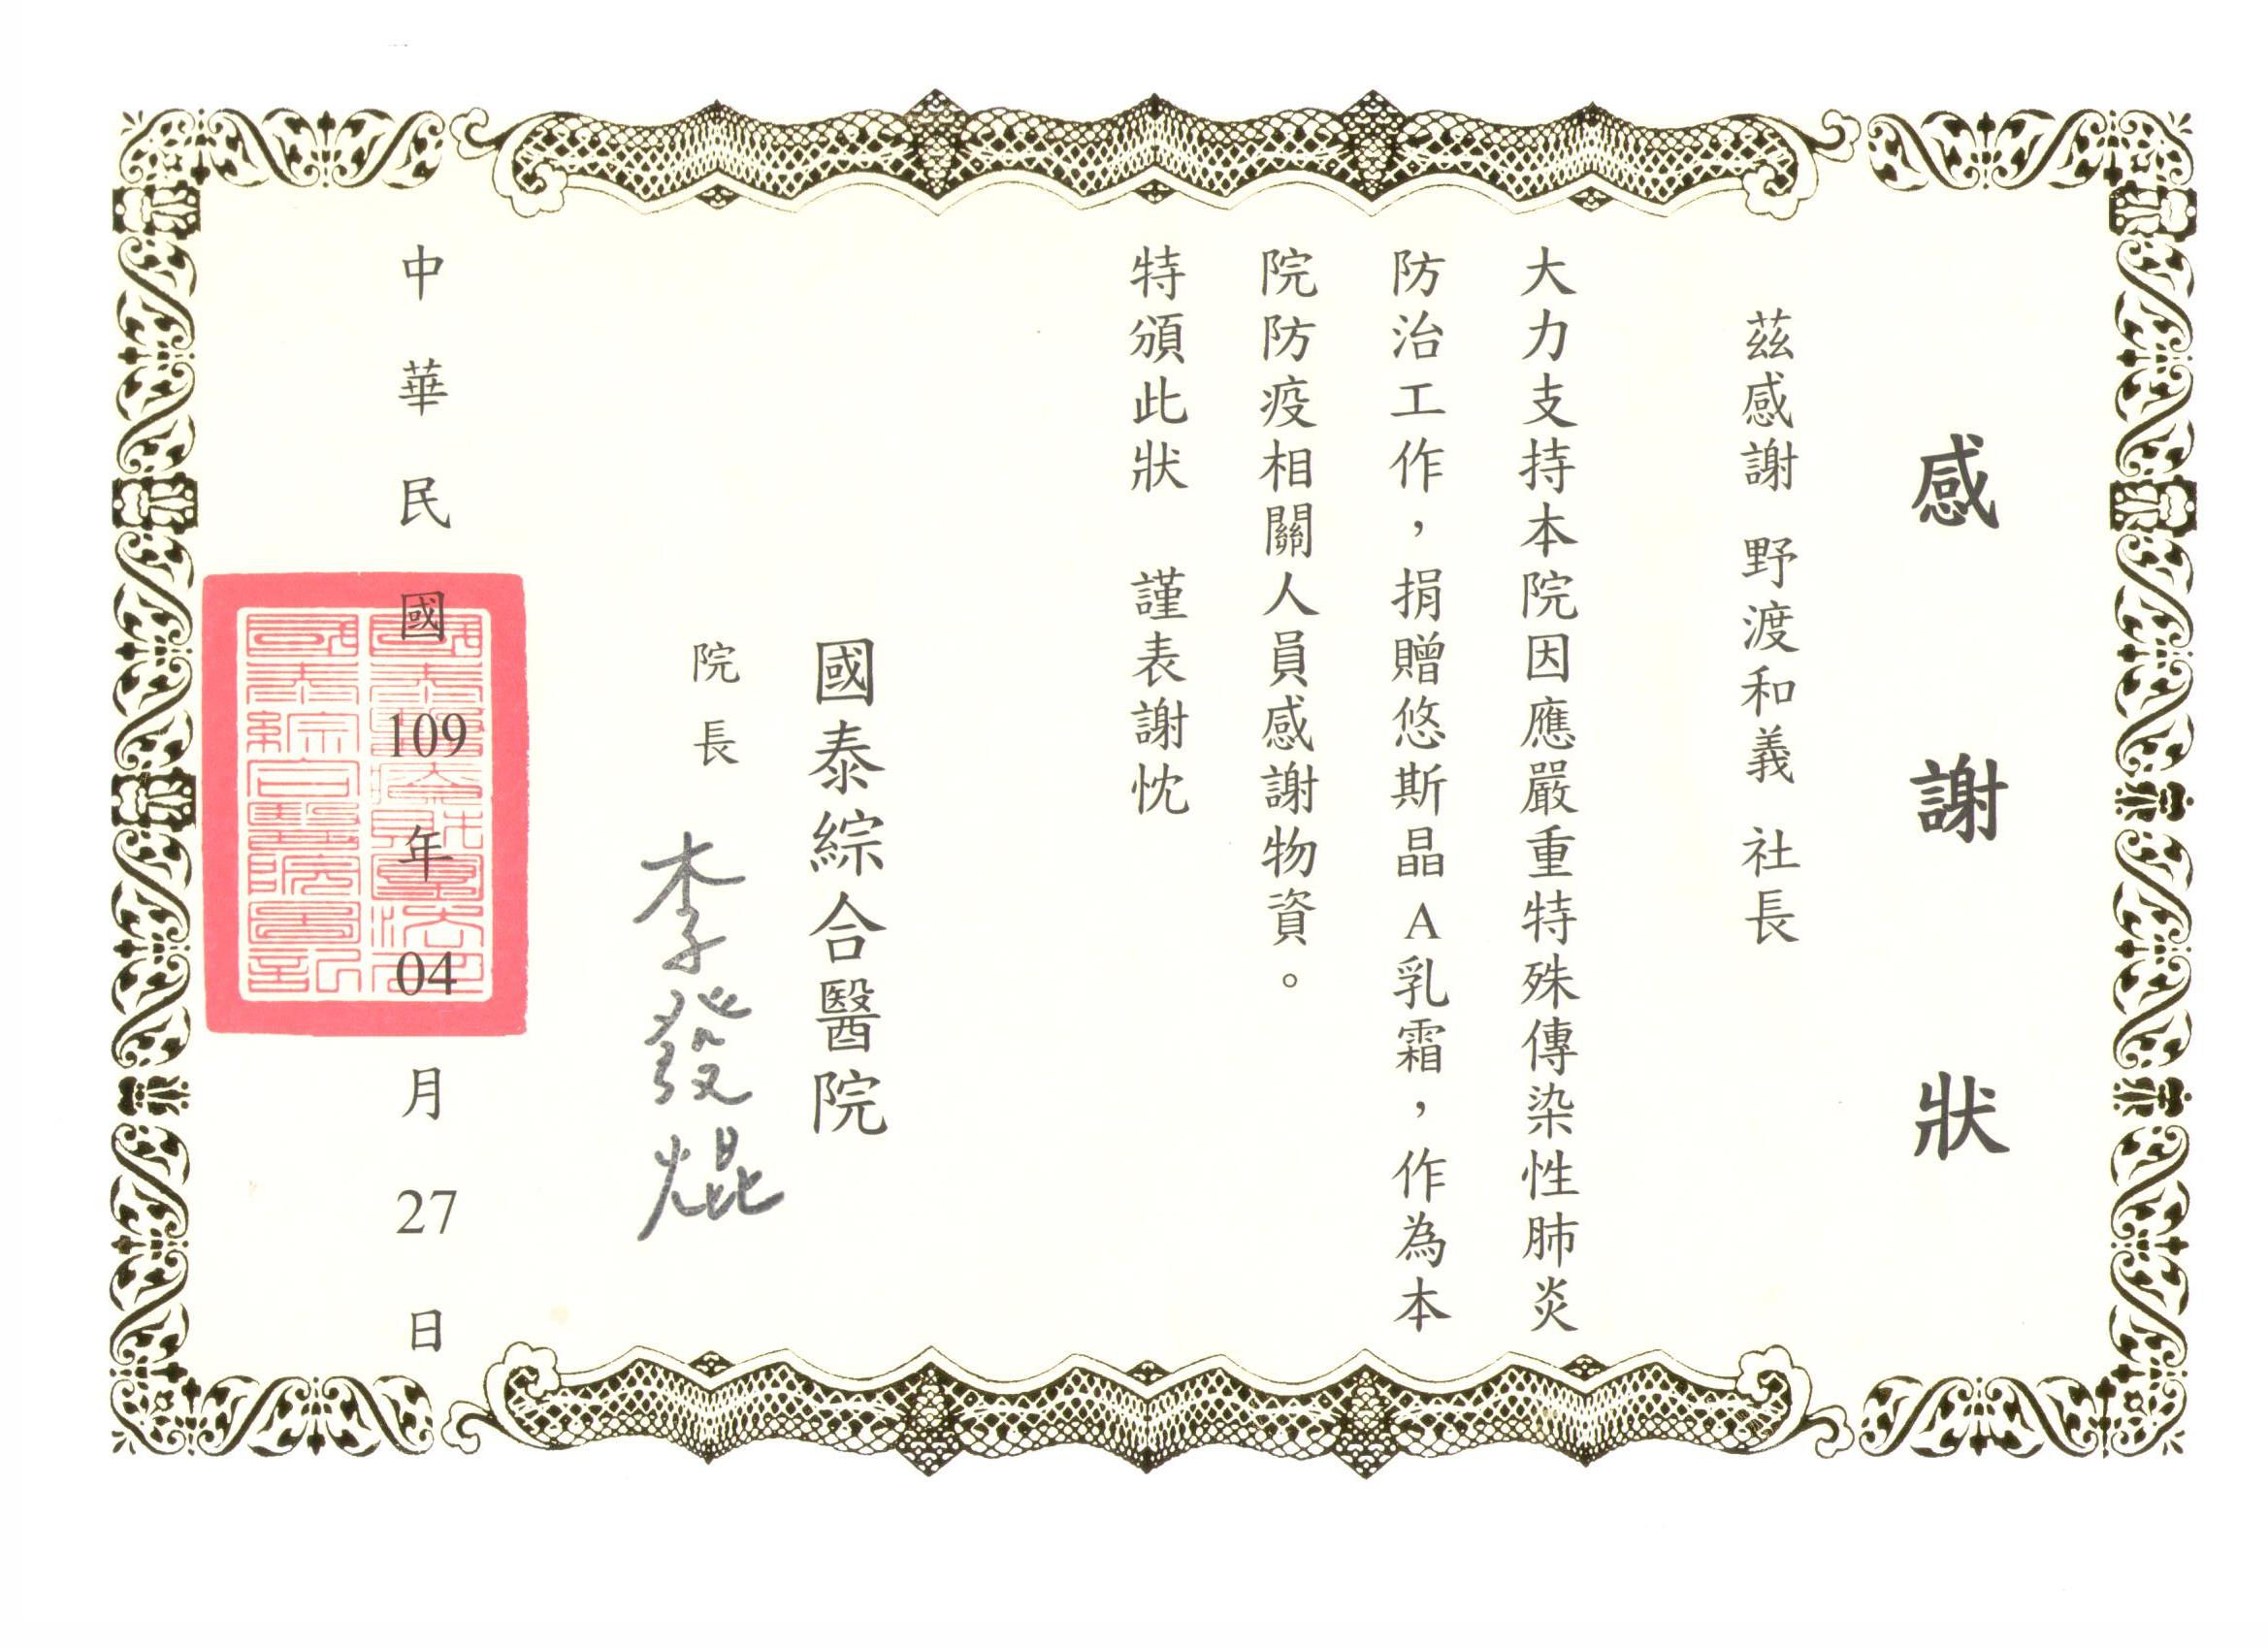 感謝狀
茲感謝 野渡和義 社長
大力支持本院因應嚴重特殊傳染性肺炎
防治工作，捐贈悠斯晶A乳霜，作為本
院防疫相關人員感謝物資。
特頒此狀 謹表謝忱
國泰綜合醫院
院長 李發焜
中華民國109年04月27日
國泰醫療財團法人
國泰綜合醫院圖記